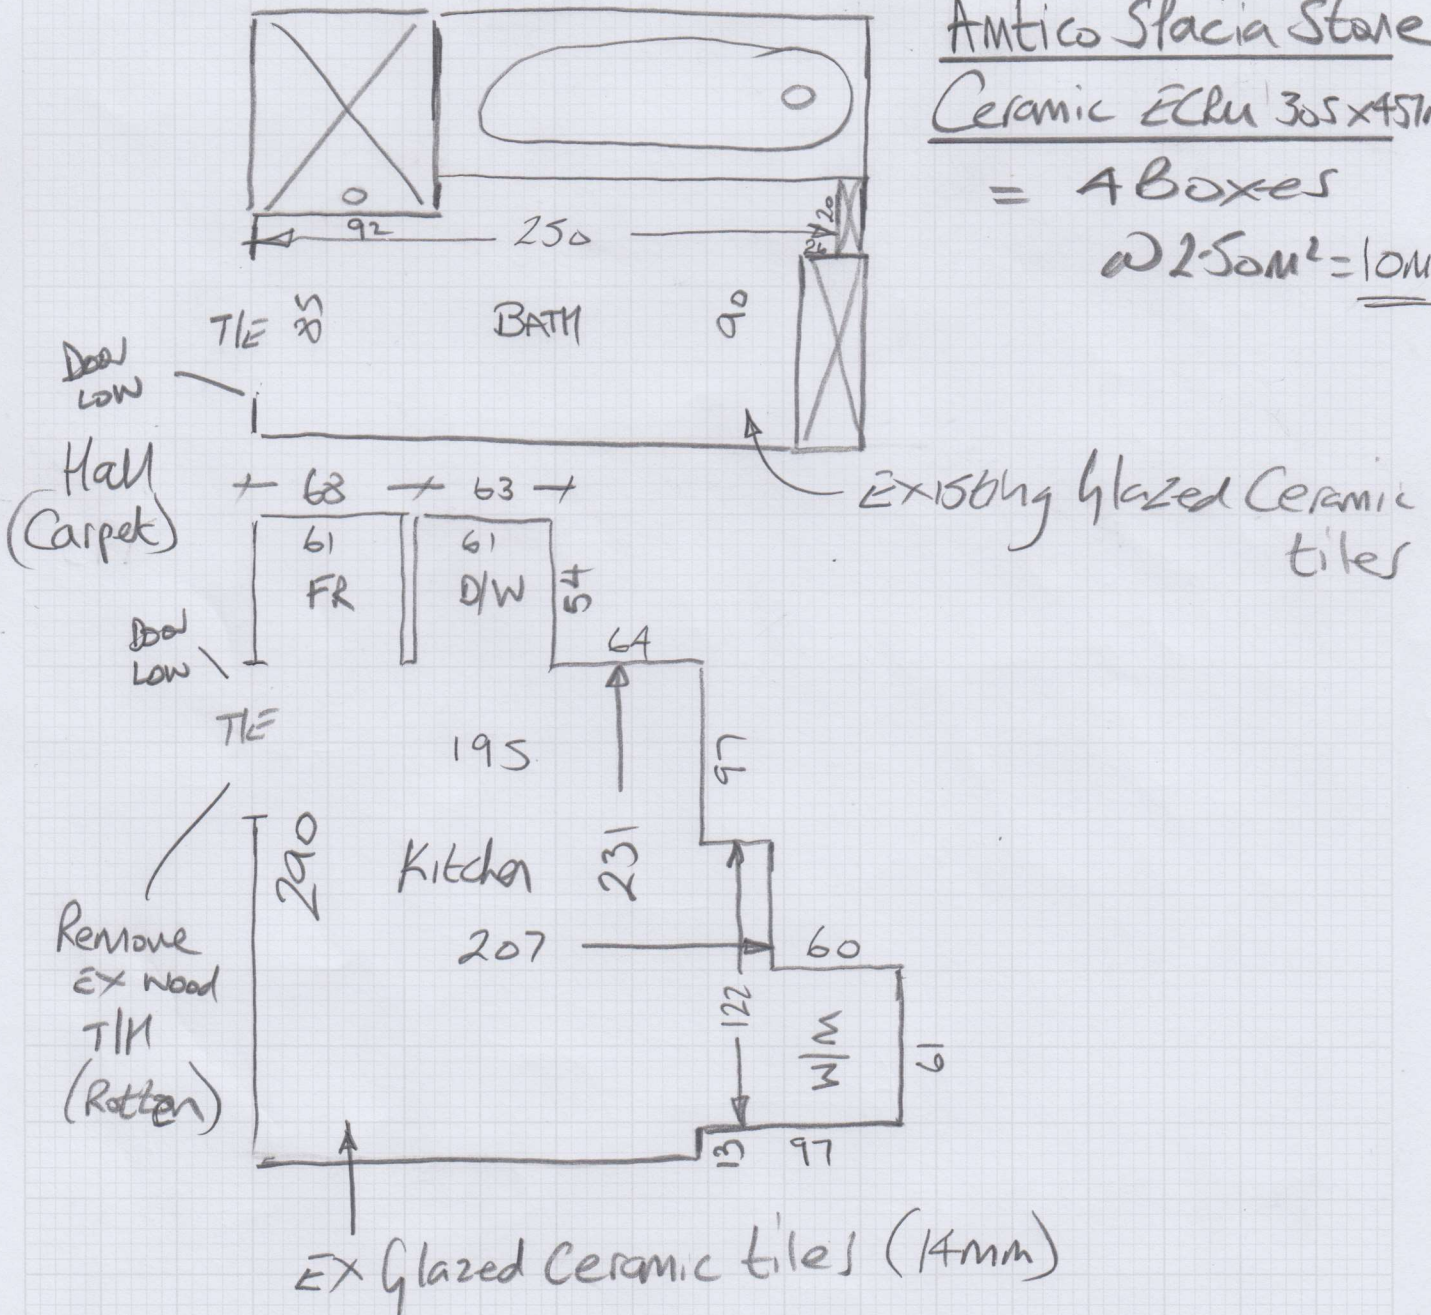 Amtico Spacia Stone
Ceramic ECRU 305x457
= 4 Boxes
@ 2.50m² = 10m
92
250
20
26
T/E
85
BATH
90
Door
Low
Hall
(Carpet)
68
63
Existing Glazed Ceramic
tiles
61
FR
61
D/W
54
64
Door
Low
T/E
195
97
290
Kitchen
231
207
60
122
W/M
61
Remove
EX Wood
T/H
(Rotten)
13
97
EX Glazed Ceramic tiles (14mm)